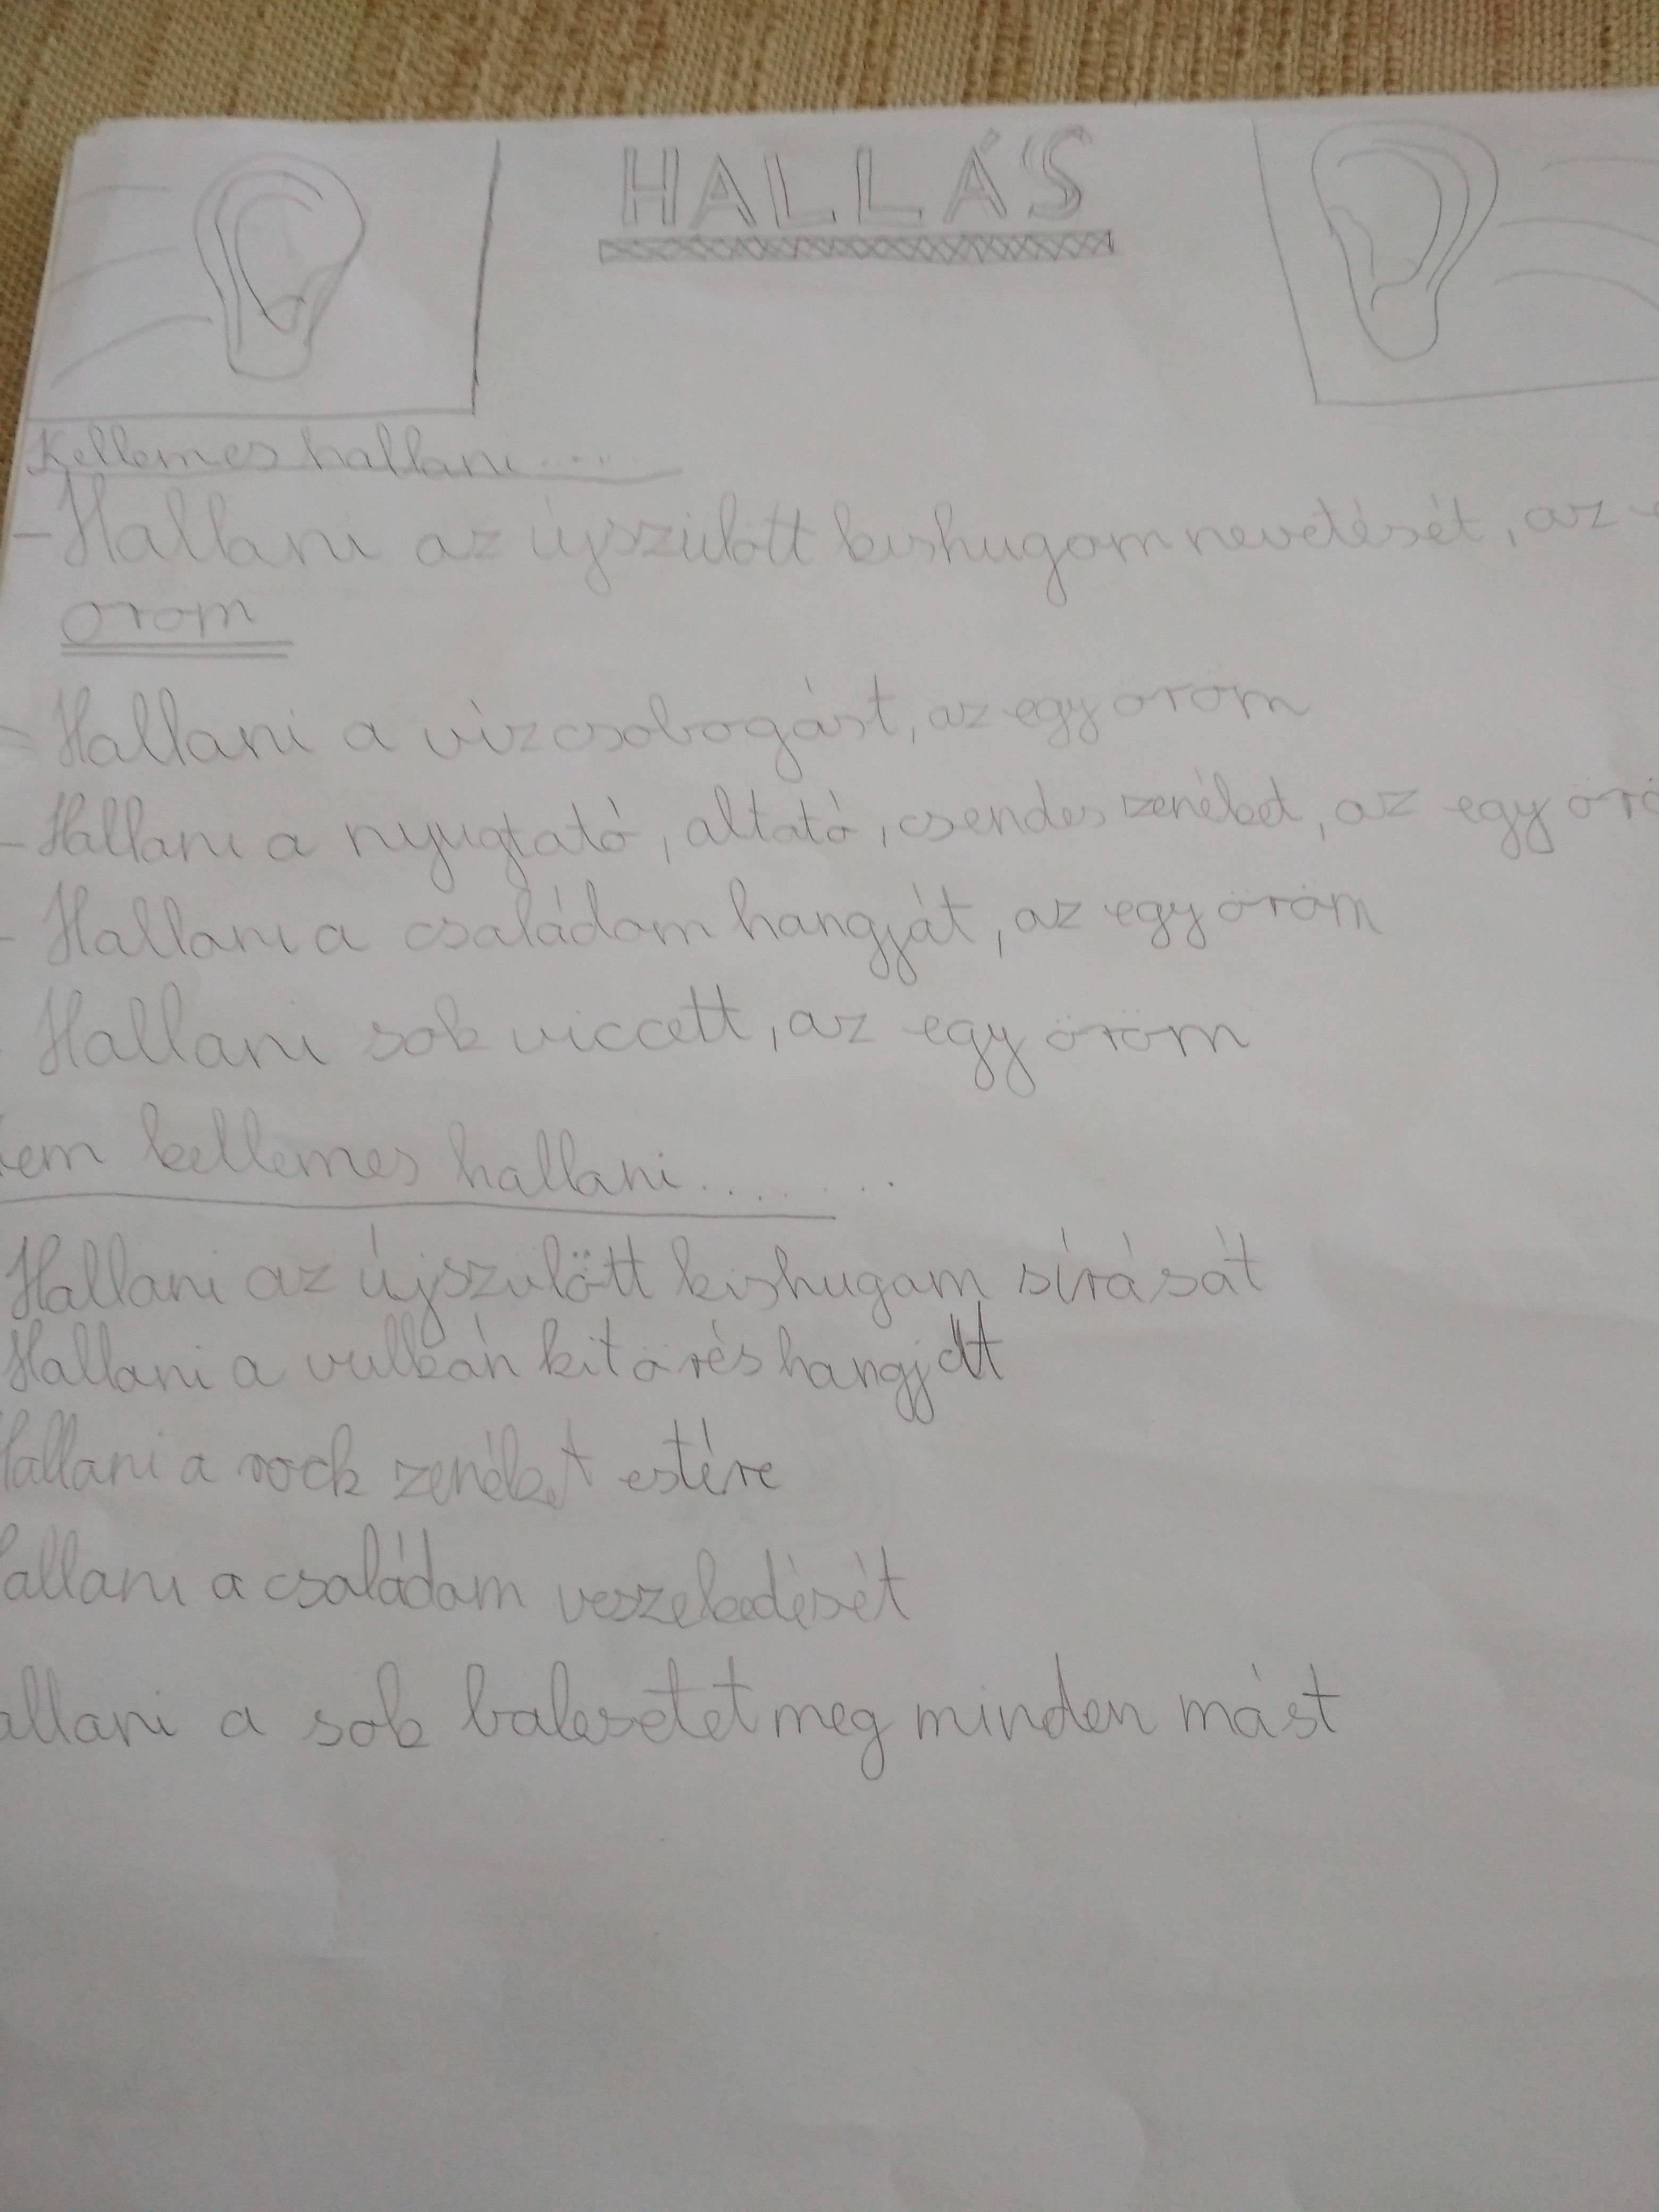 HALLÁS
Kellemes hallani.....
- Hallani az újszülött kishugom nevetését, az
öröm
- Hallani a vizcsobogást, az egy öröm
- Hallani a nyugtató, altató, csendes zenéket, az egy örö
- Hallani a családom hangját, az egy öröm
Hallani sok viccett, az egy öröm
em kellemes hallani.......
Hallani az újszülött kishugam sírását
Hallani a vulkán kitörés hangját
Hallani a rock zenéket estére
allani a családom veszekedését
allani a sok balesetet meg minden mást